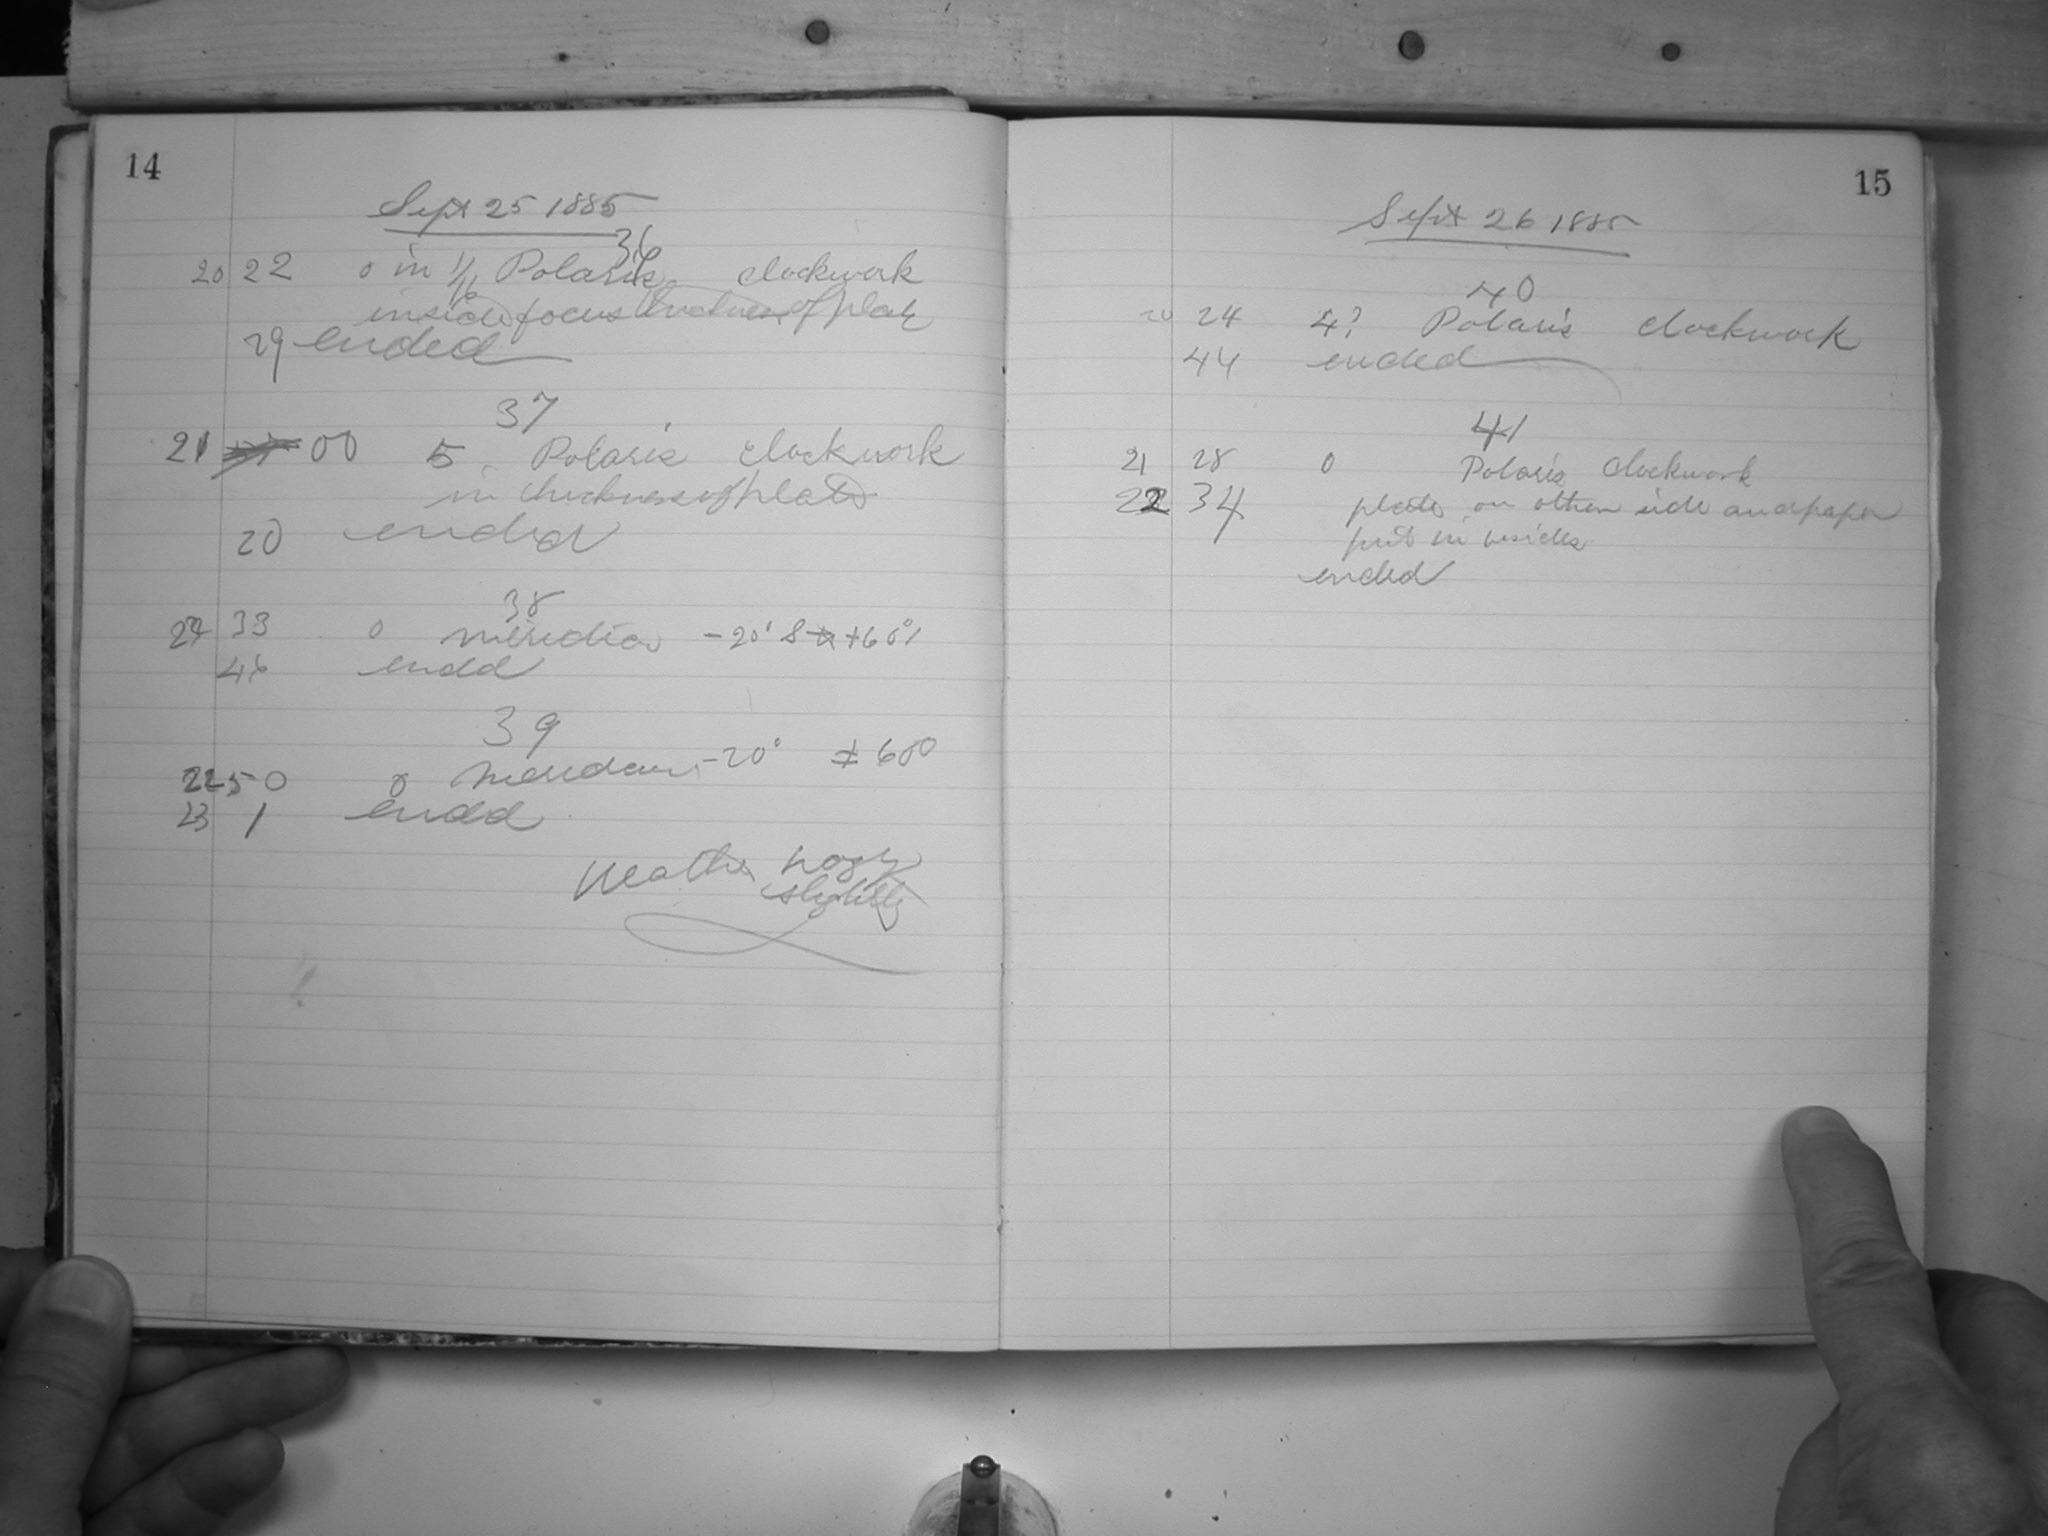 14
Sept 25 1885
36
20 22 0 in 1/16 Polaris clockwork
inside focus thickness of plate
29 ended
37
21 00 5 Polaris clockwork
in thickness of plate
20 ended
38
33 0 meridian -20° & +60°
46 ended
39
22 50 0 Meridian -20° + 60°
23 1 ended
Weather hazy
slightly
15
Sept 26 1885
40
20 24 4? Polaris clockwork
44 ended
41
21 28 0 Polaris clockwork
22 34 plate on other side and paper
put in besides
ended